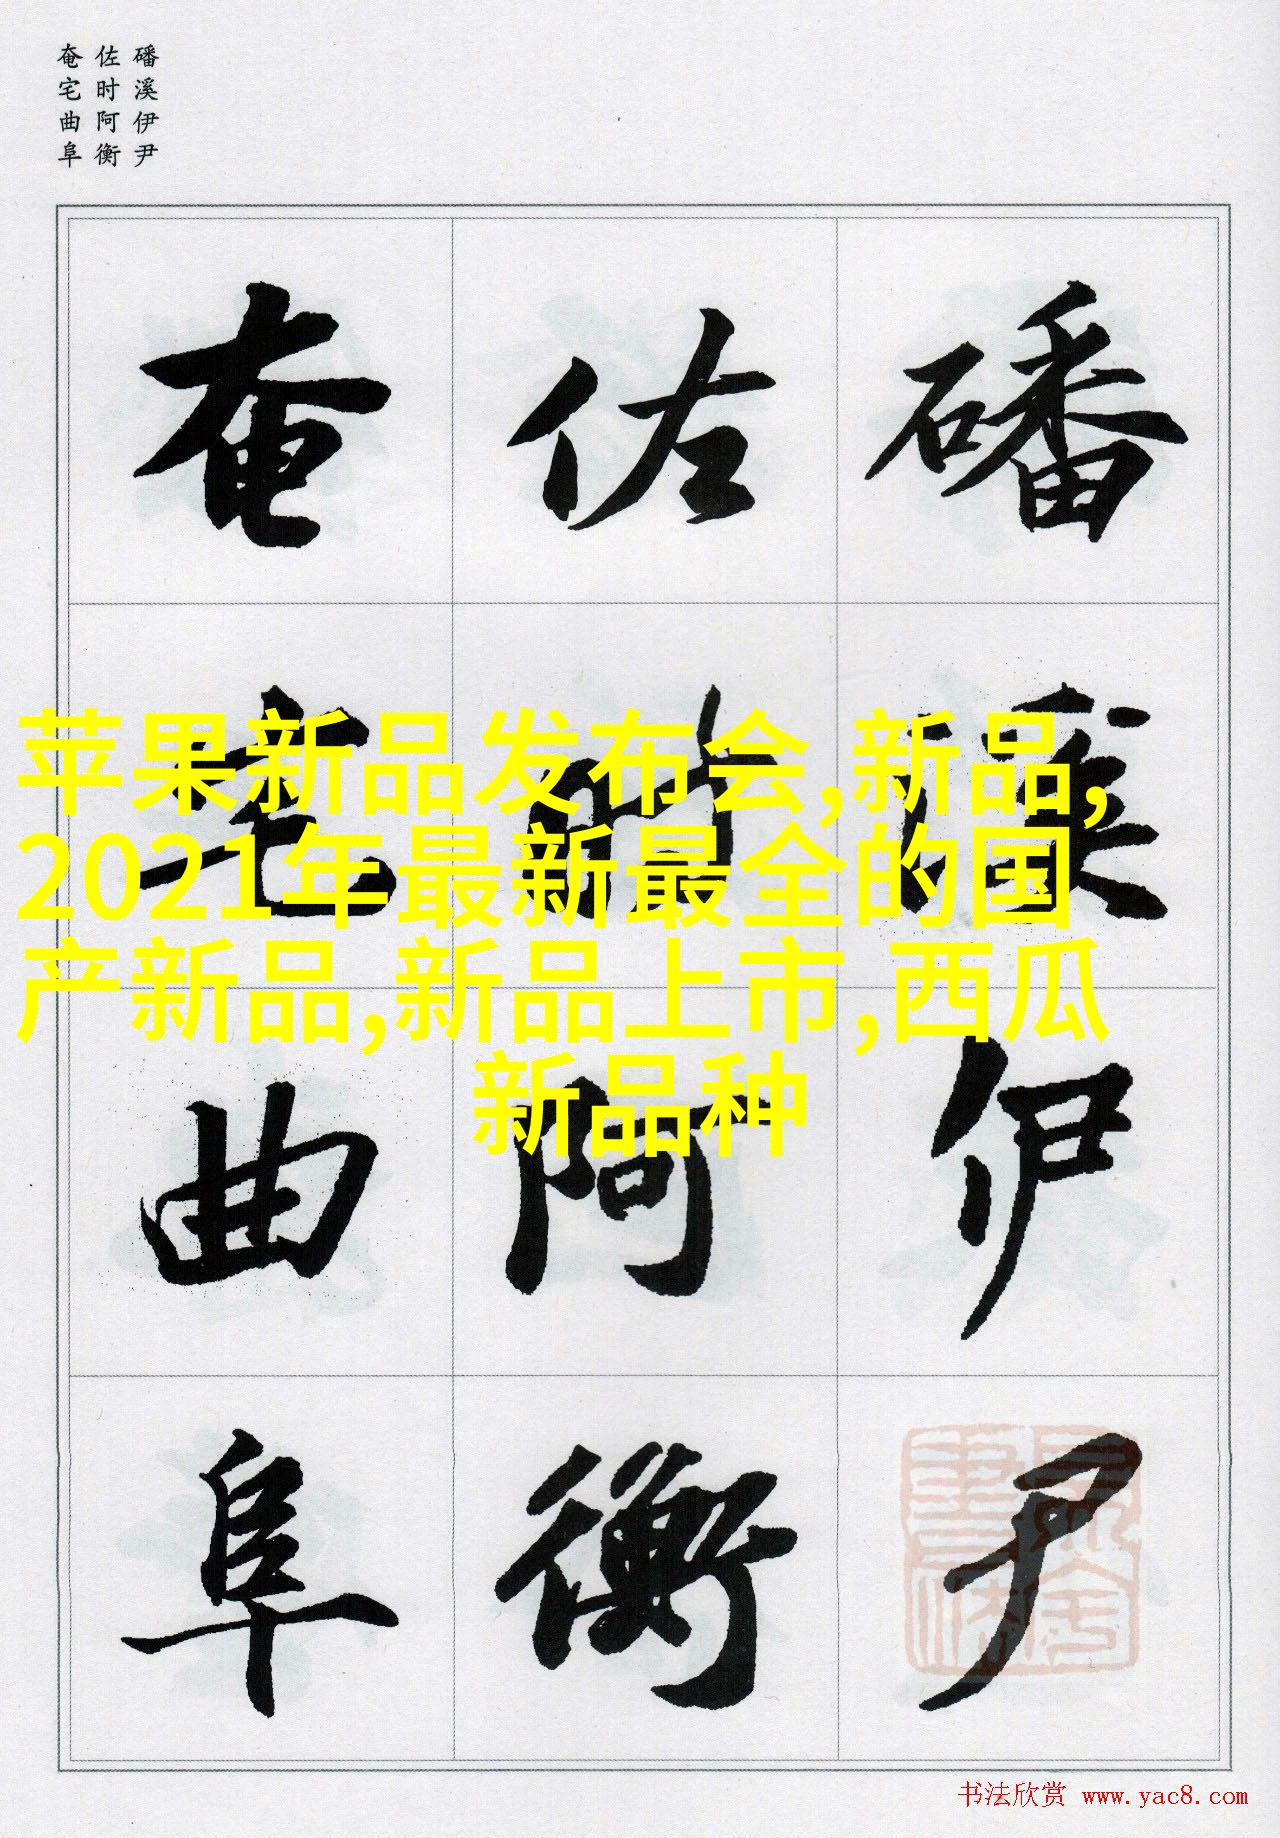 磻溪伊尹
佐时阿衡
奄宅曲阜
磻溪伊尹
佐时阿衡
奄宅曲阜
苹果新品发布会,新品,
2021年最新最全的国
产新品,新品上市,西瓜
新品种
书法欣赏 www.yac8.com